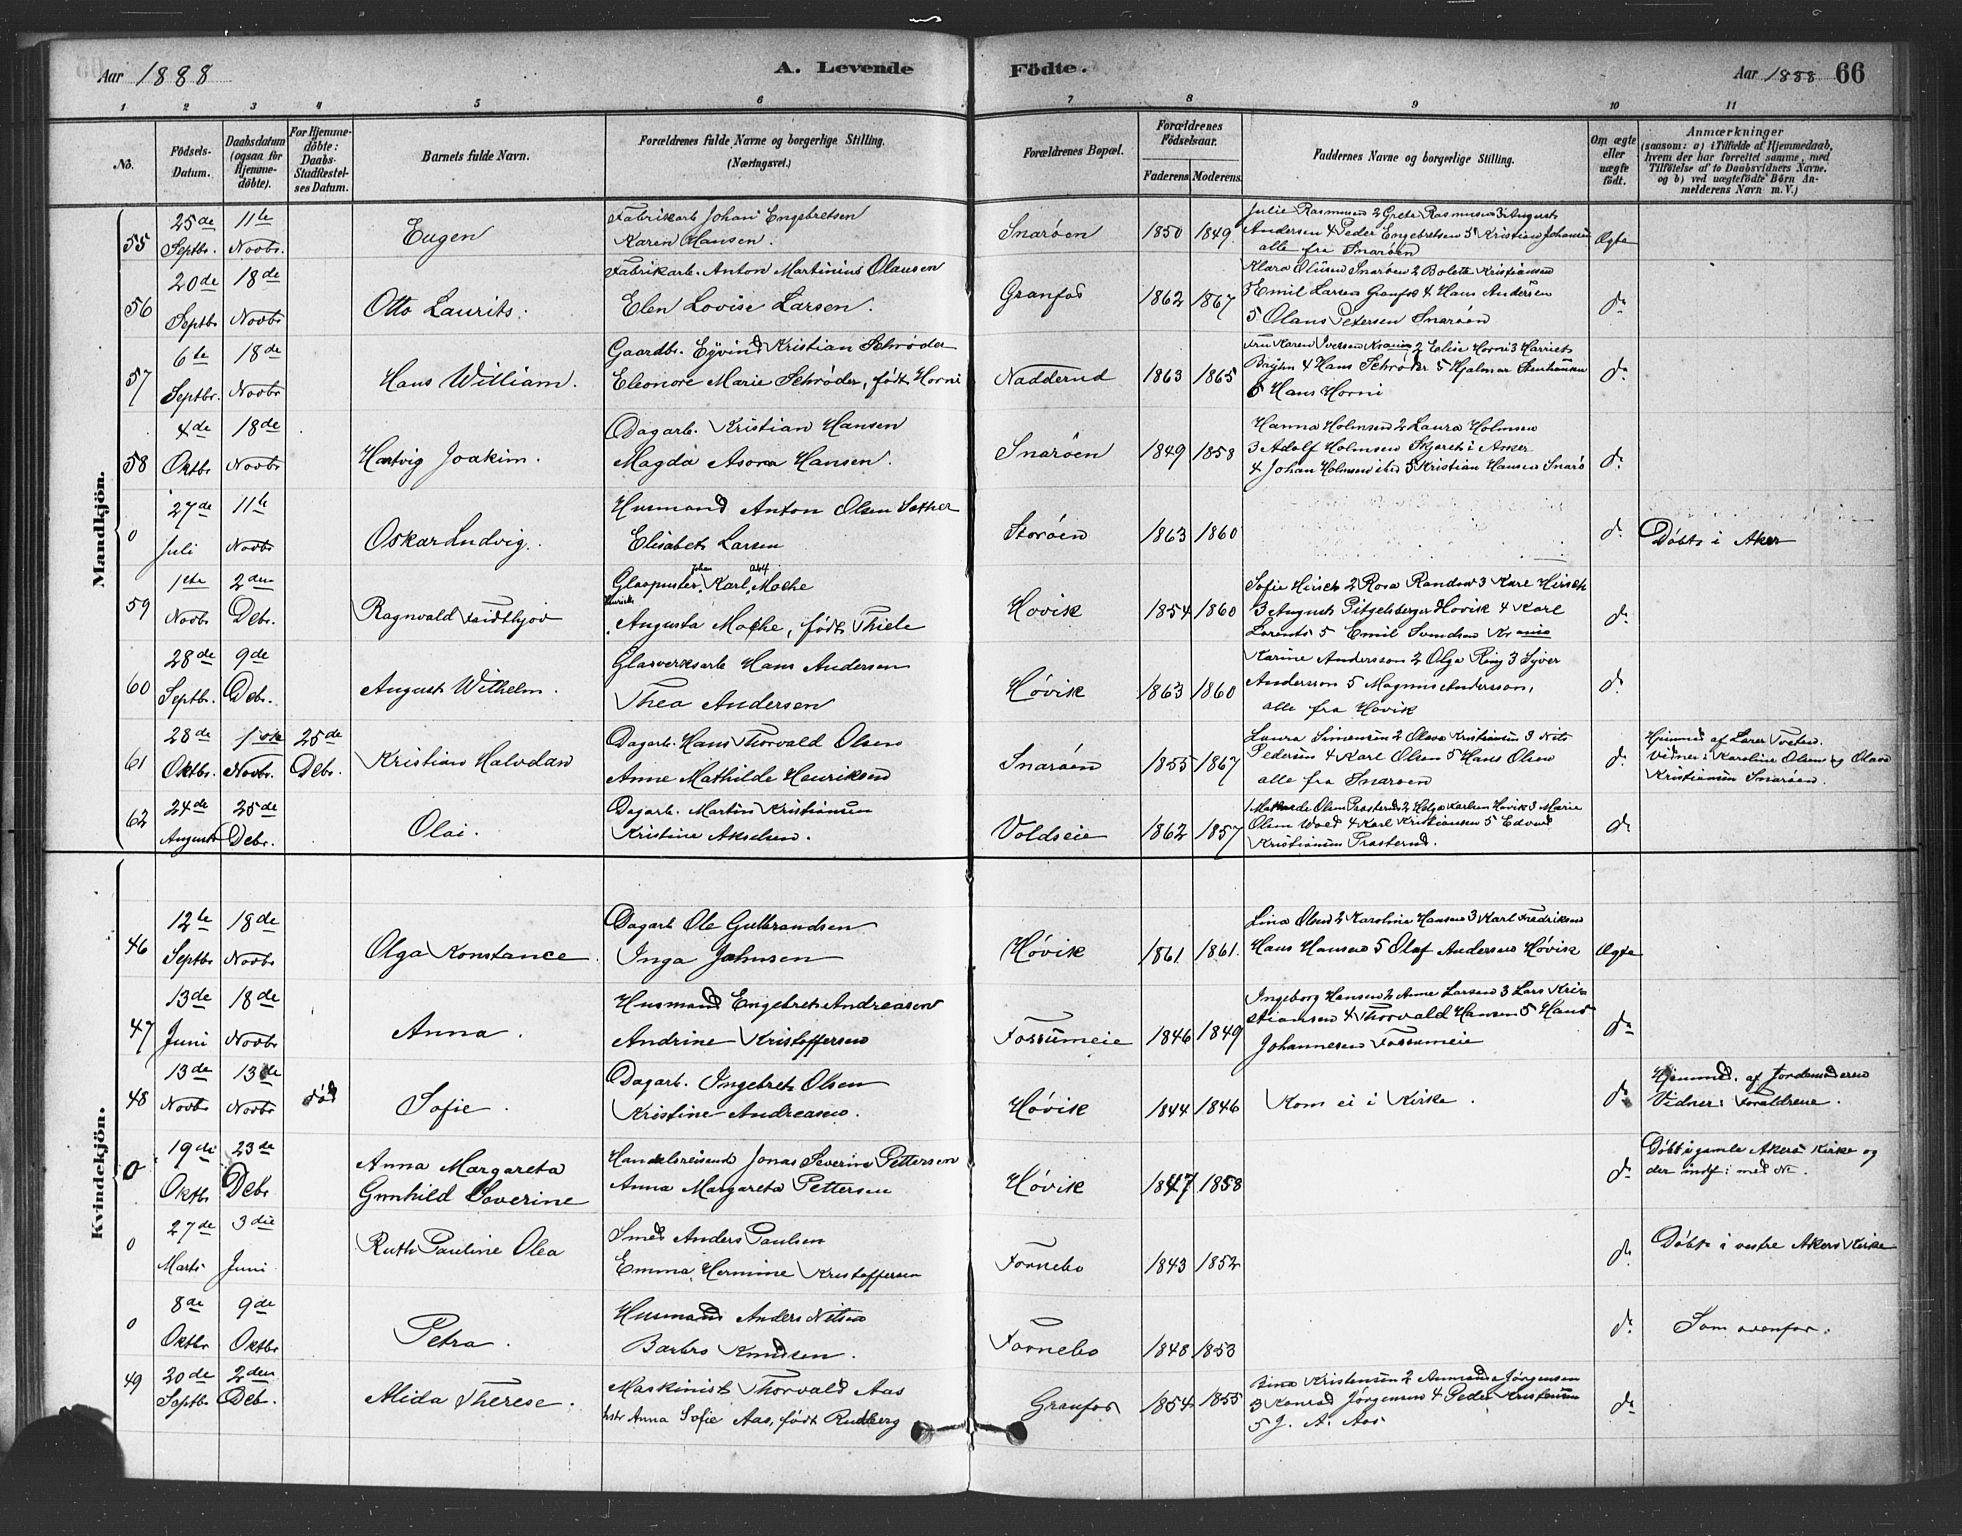 Aar 1888
A. Levende
Födte.
Aar 1888 66
1 2 3 4 5 6 7 8 9 10 11
No.
Födsels-Datum.
Daabsdatum (ogsaa for Hjemme-döbte).
For Hjemme-döbte: Daabs-Stadfæstel-ses Datum.
Barnets fulde Navn.
Forældrenes fulde Navne og borgerlige Stilling. (Næringsvei.)
Forældrenes Bopæl.
Forældrenes Födselsaar.
Faderens Moderens
Faddernes Navne og borgerlige Stilling.
Om ægte eller uægte födt.
Anmærkninger
(saasom: a) i Tilfælde af Hjemmedaab,
hvem der har forrettet samme, med
Tilföielse af to Daabsvidners Navne,
og b) ved uægtefödte Börn An-
melderens Navn m. V.)
Mandkjön.
55 25de Septbr. 11te Novbr. Eugen
Fabrikarb. Johan Engebretsen
Karen Hansen.
Snarøen 1850 1849
Julie Rasmussen 2 Grete Rasmussen 3 August
Andersen 4 Peder Engebretsen 5 Kristian Johansen
alle fra Snarøen
Ægte
56 20de Septbr 18de Novbr Otto Laurits.
Fabrikarb. Anton Martinius Olausen
Elen Lovise Larsen.
Granfos 1862 1867
Klara Olüsen Snarøen 2 Bolette Kristiansen
3 Emil Larsen Granfos 4 Hans Andersen
5 Olaus Petersen Snarøen
do
57 6te Septbr. 18de Novbr Hans William.
Gaardbr. Eyvind Kristian Schrøder
Eleonore Marie Schrøder, født Horni
Nadderud 1863 1865
Fru Karen Iversen 2 Elise Horni 3 Harriet
Bryhn 4 Hans Schrøder 5 Hjalmar Stenhausen
6 Hans Horni
do
58 4de Oktbr 18de Novbr Hartvig Joakim.
Dagarb. Kristian Hansen
Magda Asora Hansen.
Snarøen 1849 1858
Hanna Holmsen 2 Laura Holmsen
3 Adolf Holmsen Skjaret i Asker
4 Johan Holmsen ibd 5 Kristian Hansen Snarø
do
0 27de Juli 11te Novbr Oskar Ludvig.
Husmand Anton Olsen Sæther
Elisabet Larsen
Storøen 1863 1860
do Døbt i Aker
59 1ste Novbr 2den Debr. Ragnvald Fridthjov
Glaspuster Johan Karl Adolf Moche
Henriette Augusta Moche, født Thiele
Hovik 1854 1860
Sofie Hirsch 2 Rosa Randow 3 Karl Hirsch
3 August Pitgelsberger Hovik 4 Karl
Lorents 5 Emil Svendsen
do
60 28de Septbr. 9de Debr. August Wilhelm.
Glasverksarb Hans Andersen
Thea Andersen
Høvik 1863 1860
Karine Andersson 2 Olga Ring 3 Syver
Andersson 5 Magnus Andersson,
alle fra Hovik
do
61 28de Oktbr. Novbr. 25de Debr. Kristian Halvdan
Dagarb. Hans Thorvald Olsen
Anne Mathilde Henriksen
Snarøen 1855 1867
Laura Simensen 2 Olava Kristiansen 3 Nils
Pedersen 4 Karl Olsen 5 Hans Olsen
alle fra Snarøen
do
Hjemmed af Lærer Tveten.
Vidner: Karoline Olsen og Olava
Kristiansen Snarøen.
62 24de August 25de Debr. Olai.
Dagarb. Martin Kristiansen
Kristine Akselsen.
Voldseie 1862 1857
1 Mathilde Olsen Prasterud 2 Helga Karlsen Hovik 3 Marie
Olsen Wold 4 Karl Kristiansen 5 Edvard
Kristiansen Prasterud.
do
Kvindekjön.
46 12te Septbr 18de Novbr Olga Konstance.
Dagarb Ole Gulbrandsen
Inga Jahnsen
Høvik 1861 1861
Lina Olsen 2 Karoline Hansen 3 Karl Fredriksen
Hans Hansen 5 Olaf Andersen Høvik
Ægte
47 13de Juni 18de Novbr Anna.
Husmand Engebret Andreasen
Andrine Kristoffersen
Fossumeie 1846 1849
Ingeborg Hansen 2 Anne Larsen 3 Lars Kris
tiansen 4 Thorvald Hansen 5 Hans
Johannesen Fossumeie
do
48 13de Novbr 13de Novbr død Sofie.
Dagarb. Ingebret Olsen
Kristine Andreasen.
Høvik 1844 1846
Kom ei i Kirke.
do
Hjemmed. af Jordemoderen
Vidner: Forældrene.
0 19de Oktbr 23de Debr Anna Margareta
Gunhild Soverine
Handelsreisend Jonas Severin Pettersen
Anna Margareta Pettersen
Høvik 1847 1858
do
Døbt i gamle Akers Kirke og
der indf: med No.
0 27de Marts 3die Juni Ruth Pauline Olea
Smed Anders Paulsen
Emma Hermine Kristoffersen
Fornebo 1843 1852
do Døbt i vestre Akers Kirke
0 8de Oktbr 9de Oktbr Petra.
Husmand Anders Nilsen
Barbro Knudsen.
Fornebo 1848 1853
do Som ovenfor.
49 20de Septbr 2den Debr. Alida Therese.
Maskinist Thorvald Aas
Anna Sofie Aas, født Rudberg
Granfos 1854 1855
Lina Kristensen 2 Amanda Jørgensen
3 Konrad Jørgensen 4 Peder Kristensen
5 J. A. Aas
do